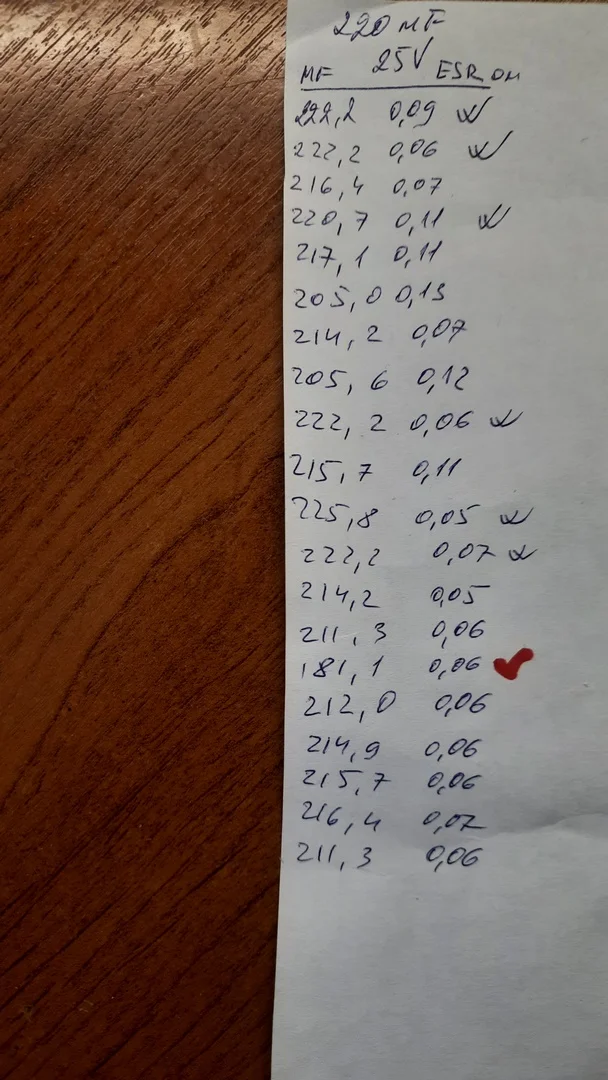 220 MF
25V
MF ESR OM
222,2 0,09 ✓
222,2 0,06 ✓
216,4 0,07
220,7 0,11 ✓
217,1 0,11
205,0 0,13
214,2 0,07
205,6 0,12
222,2 0,06 ✓
215,7 0,11
225,8 0,05 ✓
222,2 0,07 ✓
214,2 0,05
211,3 0,06
181,1 0,06 ✓
212,0 0,06
214,9 0,06
215,7 0,06
216,4 0,07
211,3 0,06